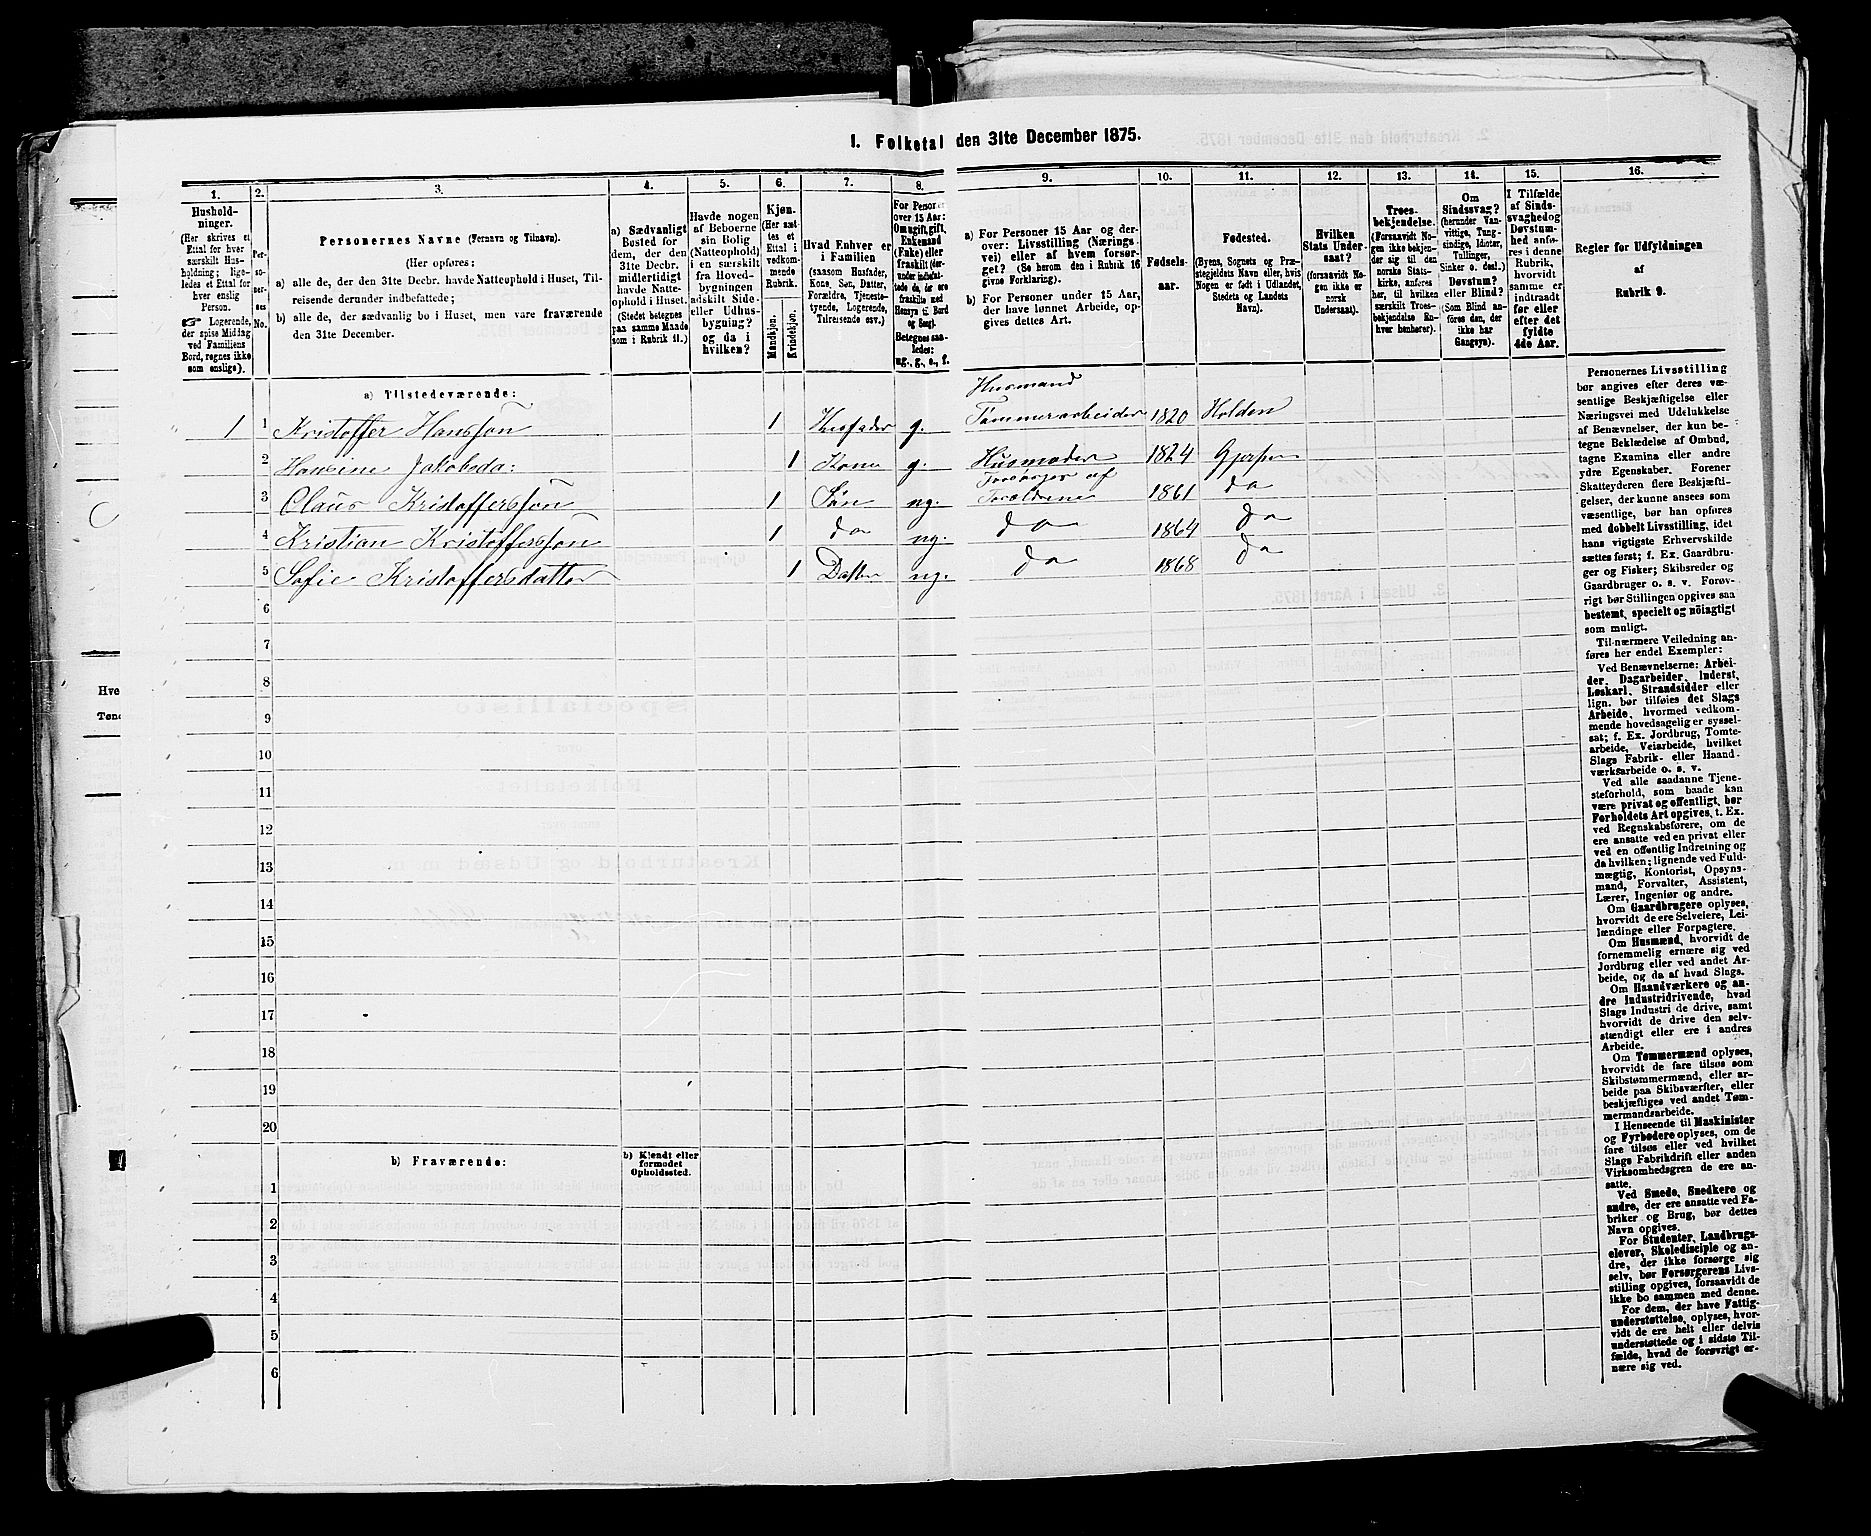 1. Folketal den 31te December 1875.
1. 2. 3. 4. 5. 6. 7. 8. 9. 10. 11. 12. 13. 14. 15. 16.
Hushold-
ninger.
(Her skrives et
Ettal for hver
særskilt Hus-
holdning; lige-
ledes et Ettal for
hver enslig
Person.
☞ Logerende,
der spise Middag
ved Familiens
Bord, regnes ikke
som enslige).
Per-
so-
ner-
nes
No.
Personernes Navne (Fornavn og Tilnavn).
(Her opføres;
a) alle de, der den 31te Decbr. havde Natteophold i Huset, Til-
reisende derunder indbefattede;
b) alle de, der sædvanlig bo i Huset, men vare fraværende
den 31te December.
a) Sædvanligt
Bosted for
dem, der den
31te Decbr.
midlertidigt
havde Natte-
ophold i Huset.
(Stedet betegnes
paa samme Maade
som i Rubrik 11.)
Havde nogen
af Beboerne
sin Bolig
(Natteophold)
i en særskilt
fra Hoved-
bygningen
adskilt Side-
eller Udhus-
bygning?
og da i
hvilken?
Kjøn.
(Her sæt-
tes et
Ettal i
vedkom-
mende
Rubrik.
Mandkjøn.
Kvindekjøn.
Hvad Enhver er
i Familien
(saasom Husfader,
Kone, Søn, Datter,
Forældre, Tjeneste-
tyende, Logerende,
Tilreisende osv.)
For Personer
over 15 Aar:
Om ugift, gift,
Enkemand
(Enke) eller
fraskilt
Betegnes saa-
ledes:
ug., g., e., f.
a) For Personer 15 Aar og der-
over: Livsstilling (Nærings-
vei) eller af hvem forsør-
get? (Se herom den i Rubrik 16
givne Forklaring).
b) For Personer under 15 Aar,
der have lønnet Arbeide, op-
gives dettes Art.
Fødsels-
aar.
Fødested.
(Byens, Sognets og Præ-
stegjeldets Navn eller, hvis
Nogen er født i Udlandet,
Stedets og Landets
Navn).
Hvilken
Stats Under-
saat?
(forsaavidt No-
gen ikke er
norsk
Undersaat).
Troes-
bekjendelse.
(Forsaavidt No-
gen ikke bekjen-
der sig til den
norske Stats-
kirke, anføres
her, til hvilken
særskilt Troes-
bekjendelse En-
hver henhører).
Om
Sindssvag?
(herunder Van-
vittige, Tung-
sindige, Idioter,
Tullinger,
Sinker o. desl.)
Døvstum?
eller Blind?
(Som Blind an-
føres den, der
ikke har
Gangsyn).
I Tilfælde
af Sinds-
svaghed og
Døvstum-
hed anfø-
res i denne
Rubrik,
hvorvidt
samme er
indtraadt
før eller
efter det
fyldte
4de Aar.
Regler for Udfyldningen
af
Rubrik 9.
a) Tilstedeværende:
Husmand
1 1 Kristoffer Hansson 1 Husfader g. Tømmerarbeider 1820 Holden
2 Hansine Jakobsda: 1 Kone g. Husmoder 1824 Gjerpen
Forsørges af
3 Claus Kristoffersson 1 Søn ug. Forældrene 1861 do
4 Kristian Kristoffersson 1 do ug. do 1864 do
5 Sofie Kristoffersdatter 1 Datter ug. do 1868 do
6
7
8
9
10
11
12
13
14
15
16
17
18
19
20
b) Fraværende: b) Kjendt eller
formodet
Opholdssted.
1
2
3
4
5
6
Personernes Livsstilling
bør angives efter deres væ-
sentlige Beskjæftigelse eller
Næringsvei med Udelukkelse
af Benævnelser, der kun be-
tegne Beklædelse af Ombud,
tagne Examina eller andre
ydre Egenskaber. Forener
Skatteyderen flere Beskjæfti-
gelser, der kunne ansees som
væsentlige, bør han opføres
med dobbelt Livsstilling, idet
hans vigtigste Erhvervskilde
sættes først; f. Ex. Gaardbru-
ger og Fisker; Skibsreder og
Gaardbruger o. s. v. Forøv-
rigt bør Stillingen opgives saa
bestemt, specielt og nöiagtigt
som muligt.
Til nærmere Veiledning an-
føres her endel Exempler:
Ved Benævnelserne: Arbei-
der, Dagarbeider, Inderst,
Løskarl, Strandsidder eller
lign. bør tilføies det Slags
Arbeide, hvormed vedkom-
mende hovedsagelig er syssel-
sat; f. Ex. Jordbrug, Tomte-
arbeide, Veiarbeide, hvilket
Slags Fabrik- eller Haand-
værksarbeide o. s. v.
Ved alle saadanne Tjene-
steforhold, som baade kan
være privat og offentligt, bør
Forholdets Art opgives, t. Ex.
ved Regnskabsførere, om de
ere ansatte ved en privat eller
ved en offentlig Indretning og
da hvilken; lignende ved Fuld-
mægtig, Kontorist, Opsyns-
mand, Forvalter, Assistent,
Lærer, Ingeniør og andre.
Om Gaardbrugere oplyses,
hvorvidt de ere Selveiere, Lei-
lændinge eller Forpagtere.
Om Husmænd, hvorvidt de
fornemmelig ernære sig ved
Jordbrug eller ved andet Ar-
beide, og da af hvad Slags.
Om Haandværkere og an-
dre Industridrivende, hvad
Slags Industri de drive, samt
hvorvidt de drive den selv-
stændigt eller ere i andres
Arbeide.
Om Tømmermænd oplyses,
hvorvidt de fare tilsøs som
Skibstømmermænd, eller ar-
beide paa Skibsværfter, eller
beskjæftiges ved andet Tøm-
mermandsarbeide.
I Henseende til Maskinister
og Fyrbødere oplyses, om de
fare tilsøs eller ved hvilket
Slags Fabrikdrift eller anden
Virksomhedsgren de ere an-
satte.
Ved Smede, Snedkere og
andre, der ere ansatte ved Fa-
briker og Brug, bør dettes
Navn opgives.
For Studenter, Landbrugs-
elever, Skoledisciple og an-
dre, der ikke forsørge sig
selv, bør Forsørgerens Livs-
stilling opgives, forsaavidt de
ikke bo sammen med denne.
For dem, der have Fattig-
understøttelse, oplyses, hvor-
vidt de ere helt eller delvis
understøttede og i sidste Til-
fælde, hvad de forøvrigt er-
nære sig ved.
Hve
Tønd